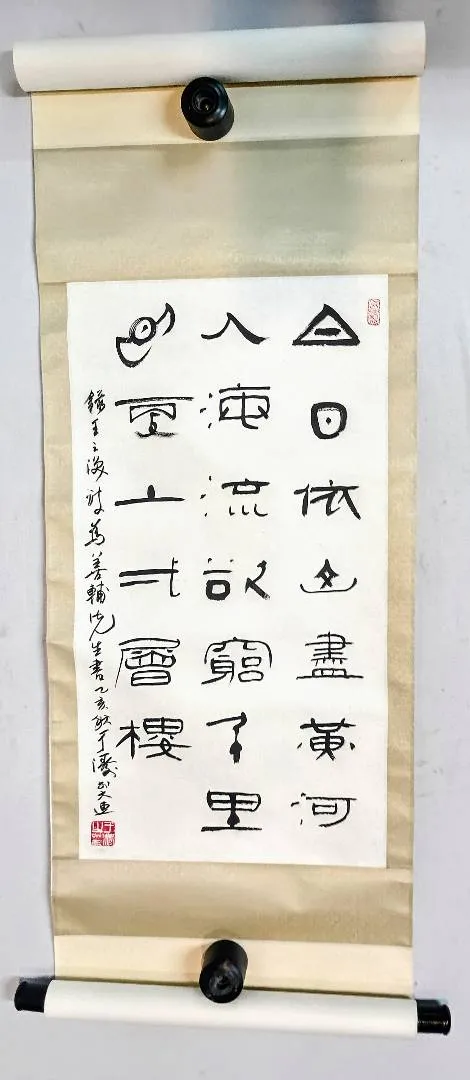 白日依山盡黃河
入海流欲窮千里
目更上弌層樓
錄王之渙詩為善輔先生書乙亥秋于濤於大連